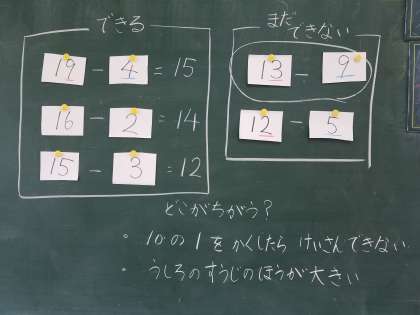 できる
19 - 4 = 15
16 - 2 = 14
15 - 3 = 12
まだ
できない
13 - 9
12 - 5
どこがちがう?
・10の1をかくしたらけいさんできない
・うしろのすうじのほうが大きい